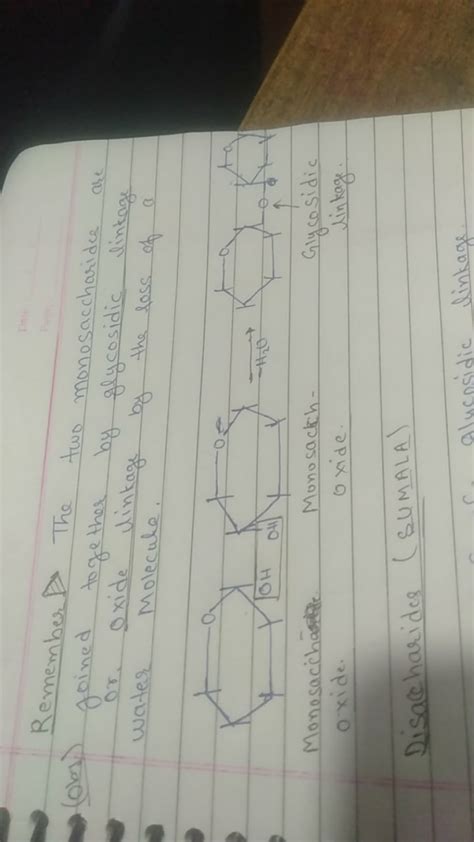 Remember
(Obj) The two monosaccharides are
joined together by glycosidic linkage
or oxide linkage by the loss of a
water Molecule.
O
O
O
O
OH
OH
-H2O
O
Monosaccha-
oxide.
Monosacch-
oxide.
Glycosidic
linkage.
Disacharides (SUMALA)
glycosidic linkage